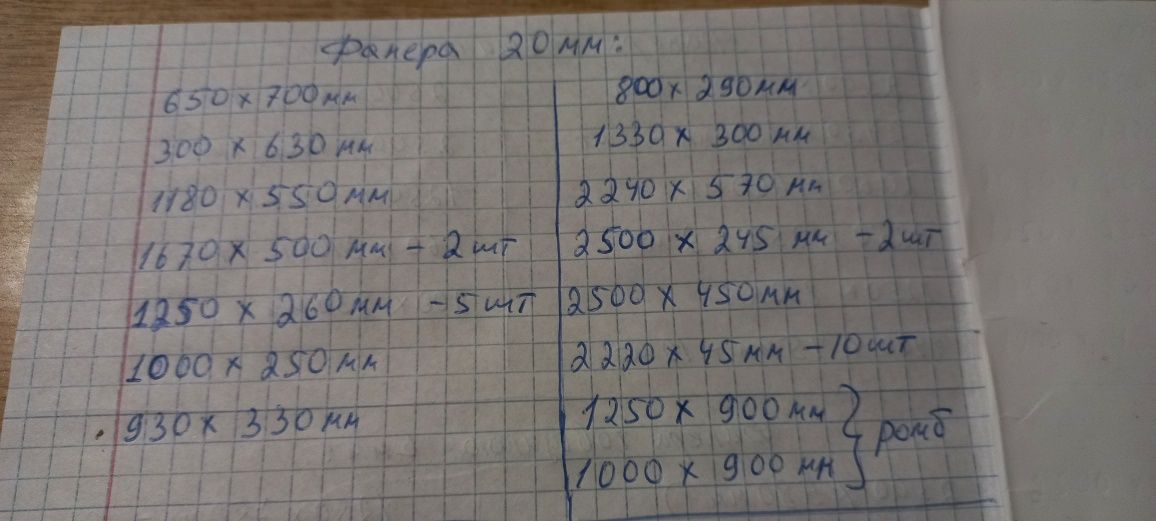 Фанера 20мм:
650 х 700мм
300 х 630 мм
1180 х 550мм
1670 х 500 мм - 2 шт
1250 х 260мм - 5 шт
1000 х 250мм
930 х 330мм
800 х 290мм
1330 х 300 мм
2240 х 570 мм
2500 х 245 мм - 2 шт
2500 х 450мм
2220 х 45мм - 10 шт
1250 х 900мм } ромб
1000 х 900 мм